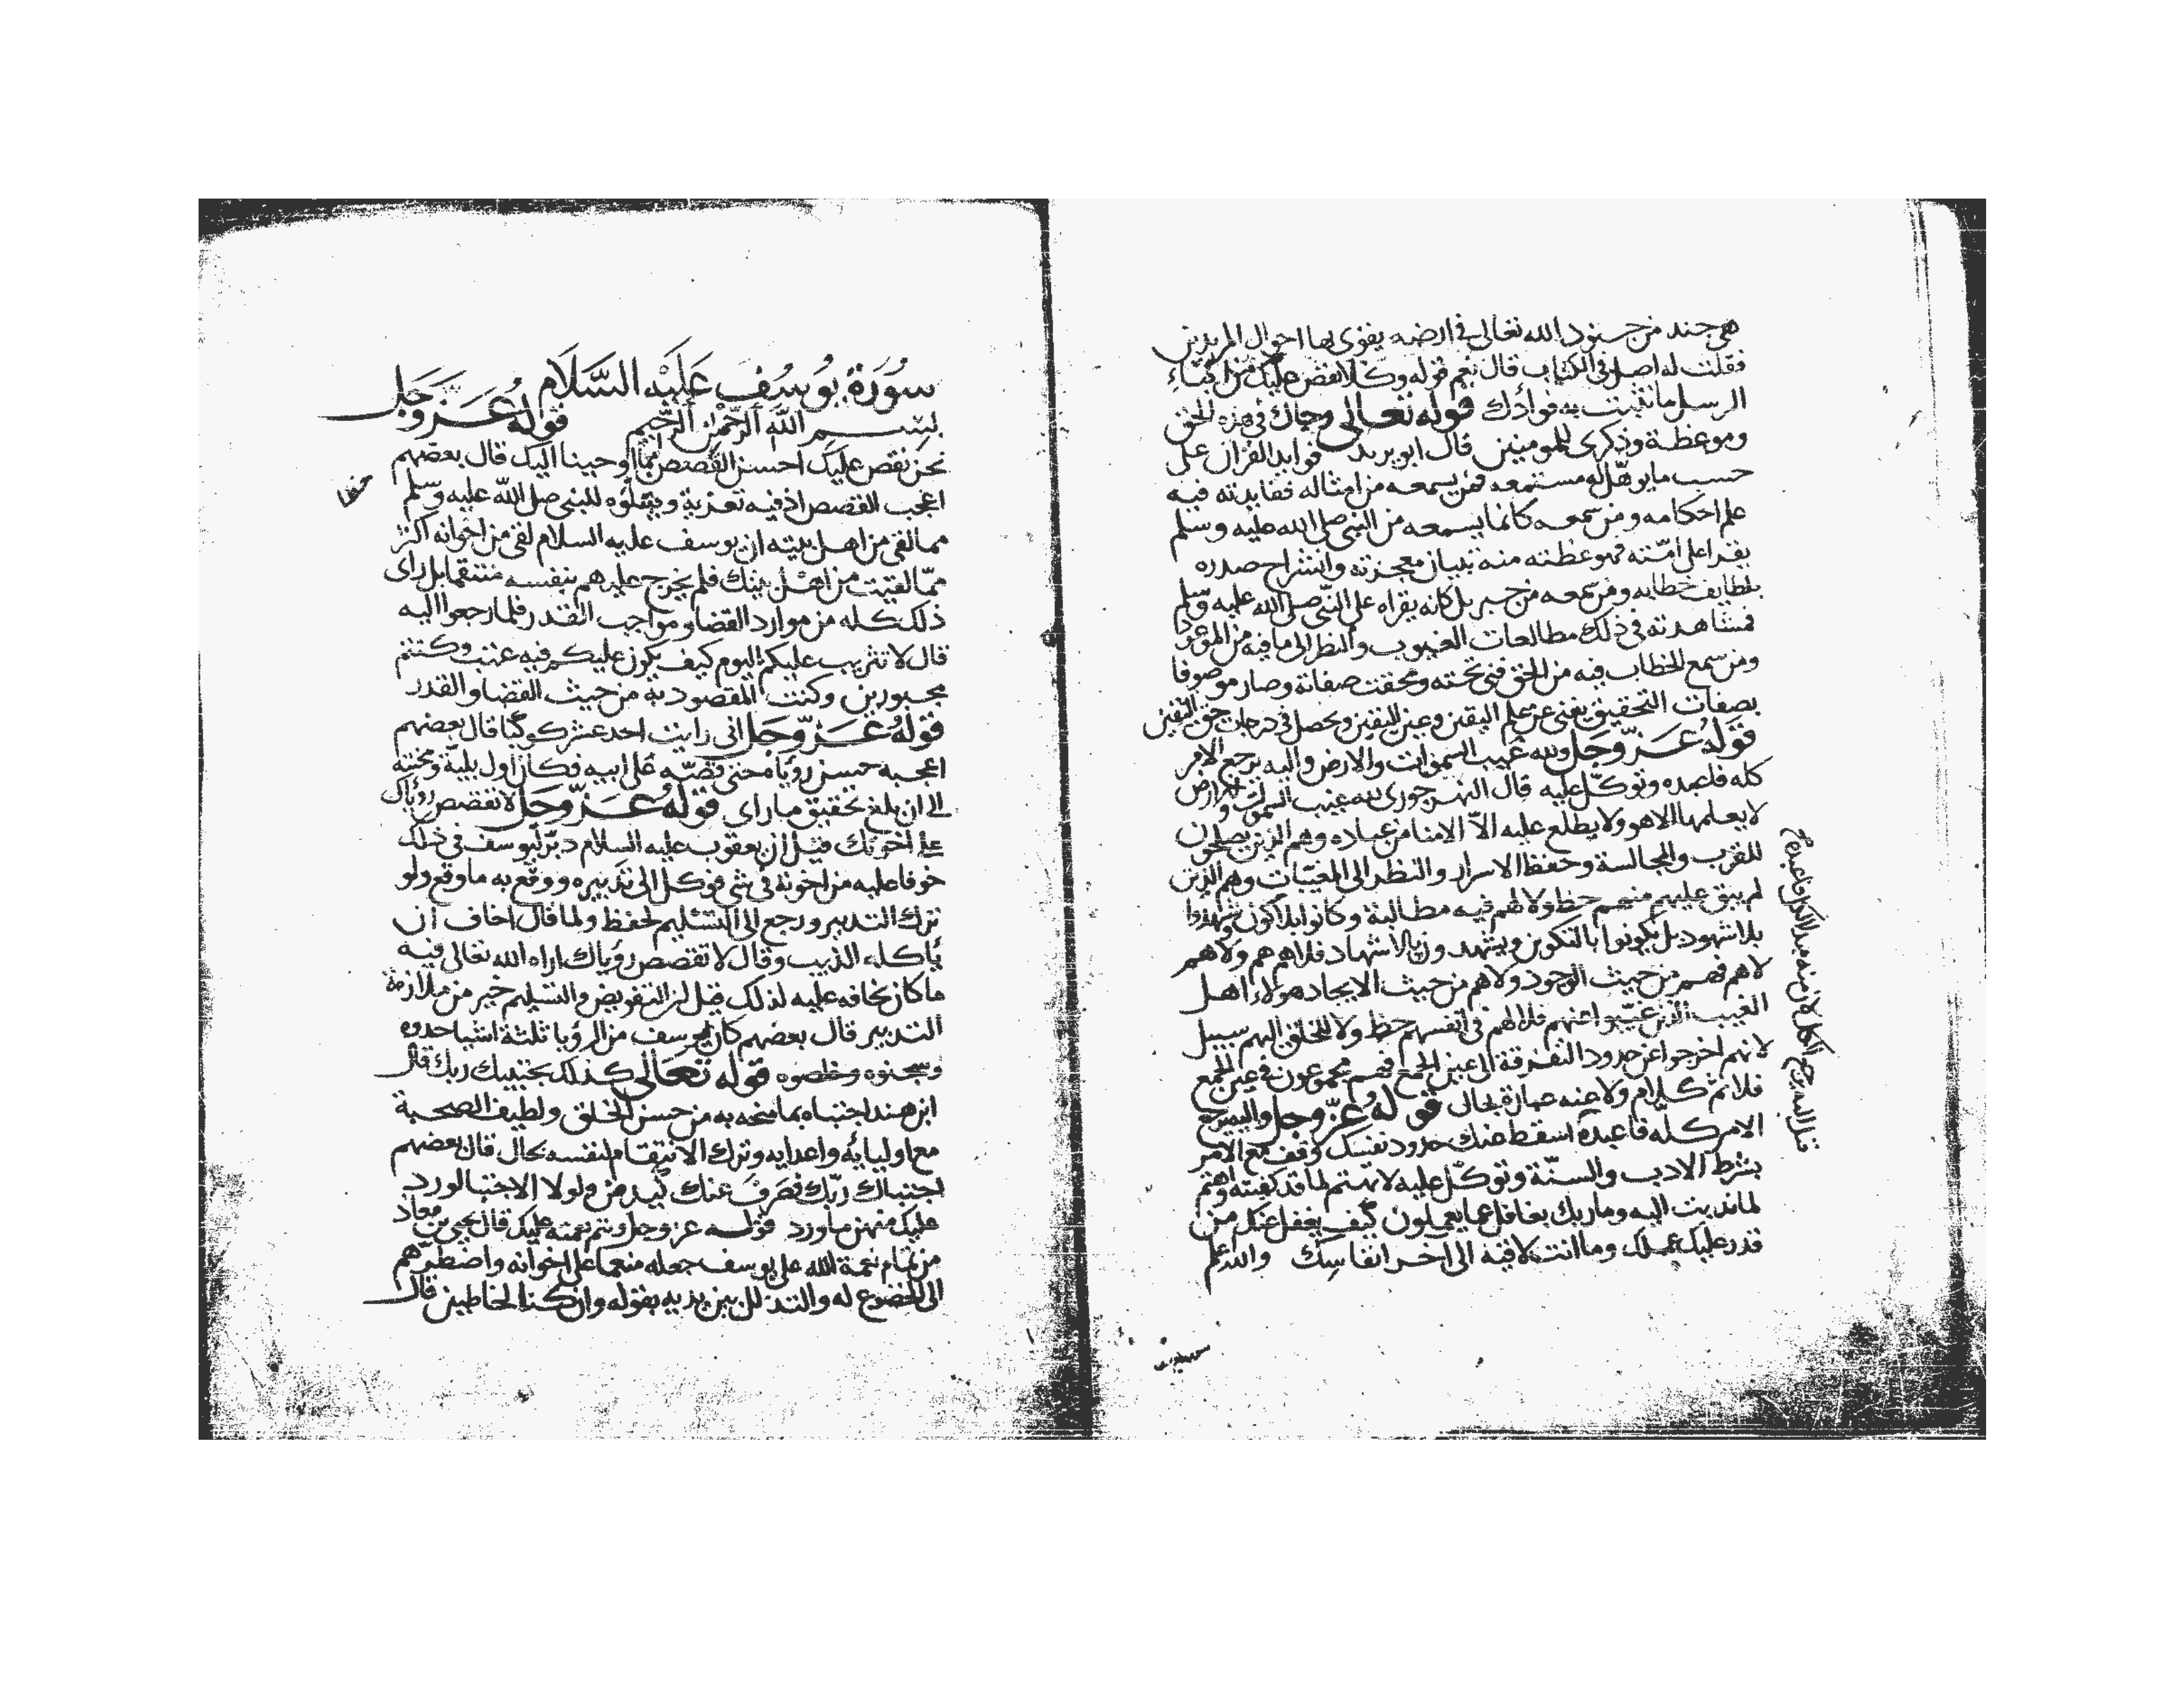 هى جند من جنود الله تعالى فى ارضه يقوى بها احوال المريدين
فقلت له اصل فى الكتاب قال نعم قوله وكلا نقص عليك من انباء
الرسل ما نثبت به فوادك قوله تعالى وجاك فى هذه الحق
وموعظة وذكرى للمومنين قال ابو يزيد فوايد القران على
حسب ما يوهل له مستمعه فمن يسمعه من امثاله ففايدته فيه
علم احكامه ومن سمعه كانما يسمعه من النبى صلى الله عليه وسلم
يقرا على امته فموعظته منه تبيان معجزته وانشراح صدره
بلطايف خطابه ومن سمعه من جبريل كانه يقراه على النبى صلى الله عليه وسلم
فمشاهدته فى ذلك مطالعات الغيوب والنظر الى ما فيه من الموعود
ومن سمع الخطاب فيه من الحق فنى تحته ومحقت صفاته وصار موصوفا
بصفات التحقيق يعنى عن علم اليقين وعين اليقين وحصل فى درجات حق اليقين
قوله عز وجل ولله غيب السموات والارض واليه يرجع الامر
كله فاعبده وتوكل عليه قال النهرجورى لله غيب السموات والارض
لا يعلمها الا هو ولا يطلع عليه الا الامنا من عباده وهم الذين يصلحون
للقرب والمجالسة وحفظ الاسرار والنظر الى المغيبات وهم الذين
لم يبق عليهم منهم حظ ولا لهم فيه مطالبة وكانوا بلا كون وشهدوا
بلا شهود بل يكونوا بالتكوين ويشهدون بالاشهاد فلا هم هم ولا هم
لا هم فهم من حيث الوجود ولا هم من حيث الايجاد هولاء اهل
الغيب الذين غيبوا عنهم فلا لهم فى انفسهم حظ ولا للخلق اليهم سبيل
لانهم اخرجوا عن حدود التفرقة الى عين الجمع فهم مجموعون فى عين الجمع
فلا ثم كلام ولا عنه عبارة بحال قوله عز وجل واليه يرجع
الامر كله فاعبده اسقط عنك حدود نفسك وقف مع الامر
بشرط الادب والسنة وتوكل عليه لا تهتم لما قد كفيته واهتم
لما ندبت اليه وما ربك بغافل عما يعملون كيف يغفل عنك من
قدر عليك عملك وما انت لاقيه الى اخر انفاسك والله اعلم
سورة يوسف عليه السلام
بسم الله الرحمن الرحيم قوله عز وجل
نحن نقص عليك احسن القصص بما اوحينا اليك قال بعضهم
اعجب القصص اذ فيه تعزية للنبى صلى الله عليه وسلم
مما لقى من اهل بيته ان يوسف عليه السلام لقى من اخوانه اكثر
مما لقيت من اهل بيتك فلم يخرج عليهم بنفسه منتقما بل راى
ذلك كله من موارد القضا ومواجب القدر فلما رجعوا اليه
قال لا تثريب عليكم اليوم كيف يكون عليكم فيه عنت وكنتم
مجبورين وكنت المقصود به من حيث القضا والقدر
قوله عز وجل انى رايت احد عشر كوكبا قال بعضهم
اعجبه حسن روياه حتى قصه على ابيه فكان اول بلية ومحنته
الى ان بلغ تحقيق ما راى قوله عز وجل لا تقصص روياك
على اخوتك قيل ان يعقوب عليه السلام دبر ليوسف فى ذلك
خوفا عليه من اخوته فى شى فوكل الى تدبيره ووقع به ما وقع ولو
ترك التدبير ورجع الى التسليم لحفظ ولما قال اخاف ان
ياكله الذيب وقال لا تقصص روياك اراه الله تعالى فيه
ما كان يخافه عليه لذلك قيل ان التفويض والتسليم خير من ملازمة
التدبير قال بعضهم كان ليوسف من الرويا ثلثة اشيا حدوه
وسجنوه وخلصوه قوله تعالى كذلك يجتبيك ربك قال
ابن هند اجتباه بما منحه به من حسن الخلق ولطيف الصحبة
مع اوليائه واعدايه وترك الانتقام لنفسه بحال قال بعضهم
اجتباك ربك فصرف عنك كيدهن ولولا الاجتبا لورد
عليك منهن ما ورد قوله عز وجل ويتم نعمته عليك قال يحيى بن معاذ
من تمام نعمة الله على يوسف جعله منعما على اخوانه واضطرهم
الى الخضوع له والتذلل بين يديه بقوله وان كنا لخاطين قال